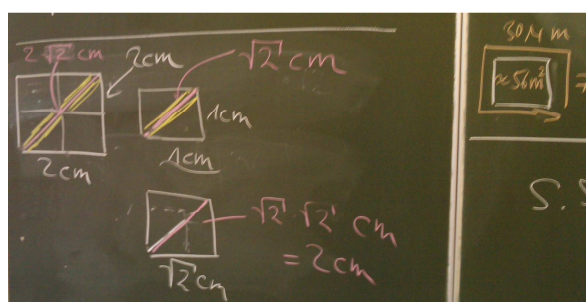 2√2 cm
2cm
2cm
√2 cm
1cm
1cm
√2 · √2 cm
= 2cm
√2 cm
≈56m²
S.